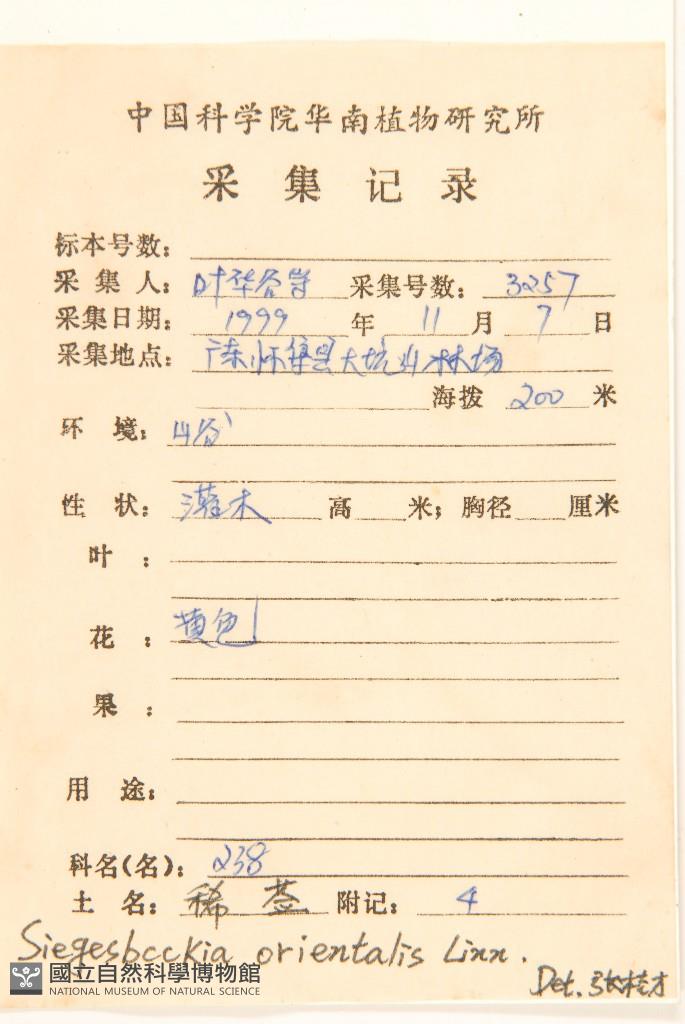 中国科学院华南植物研究所
采集记录
标本号数：
采集人：叶华谷等 采集号数：3257
采集日期：1999年11月7日
采集地点：广东怀集县大坑山林场
海拨 200 米
环境：山谷
性状：灌木 高 米；胸径 厘米
叶：
花：黄色
果：
用途：
科名(名)：238
土名：稀莶 附记：4
Siegesbeckia orientalis Linn.
Det. 张桂才
國立自然科學博物館
NATIONAL MUSEUM OF NATURAL SCIENCE